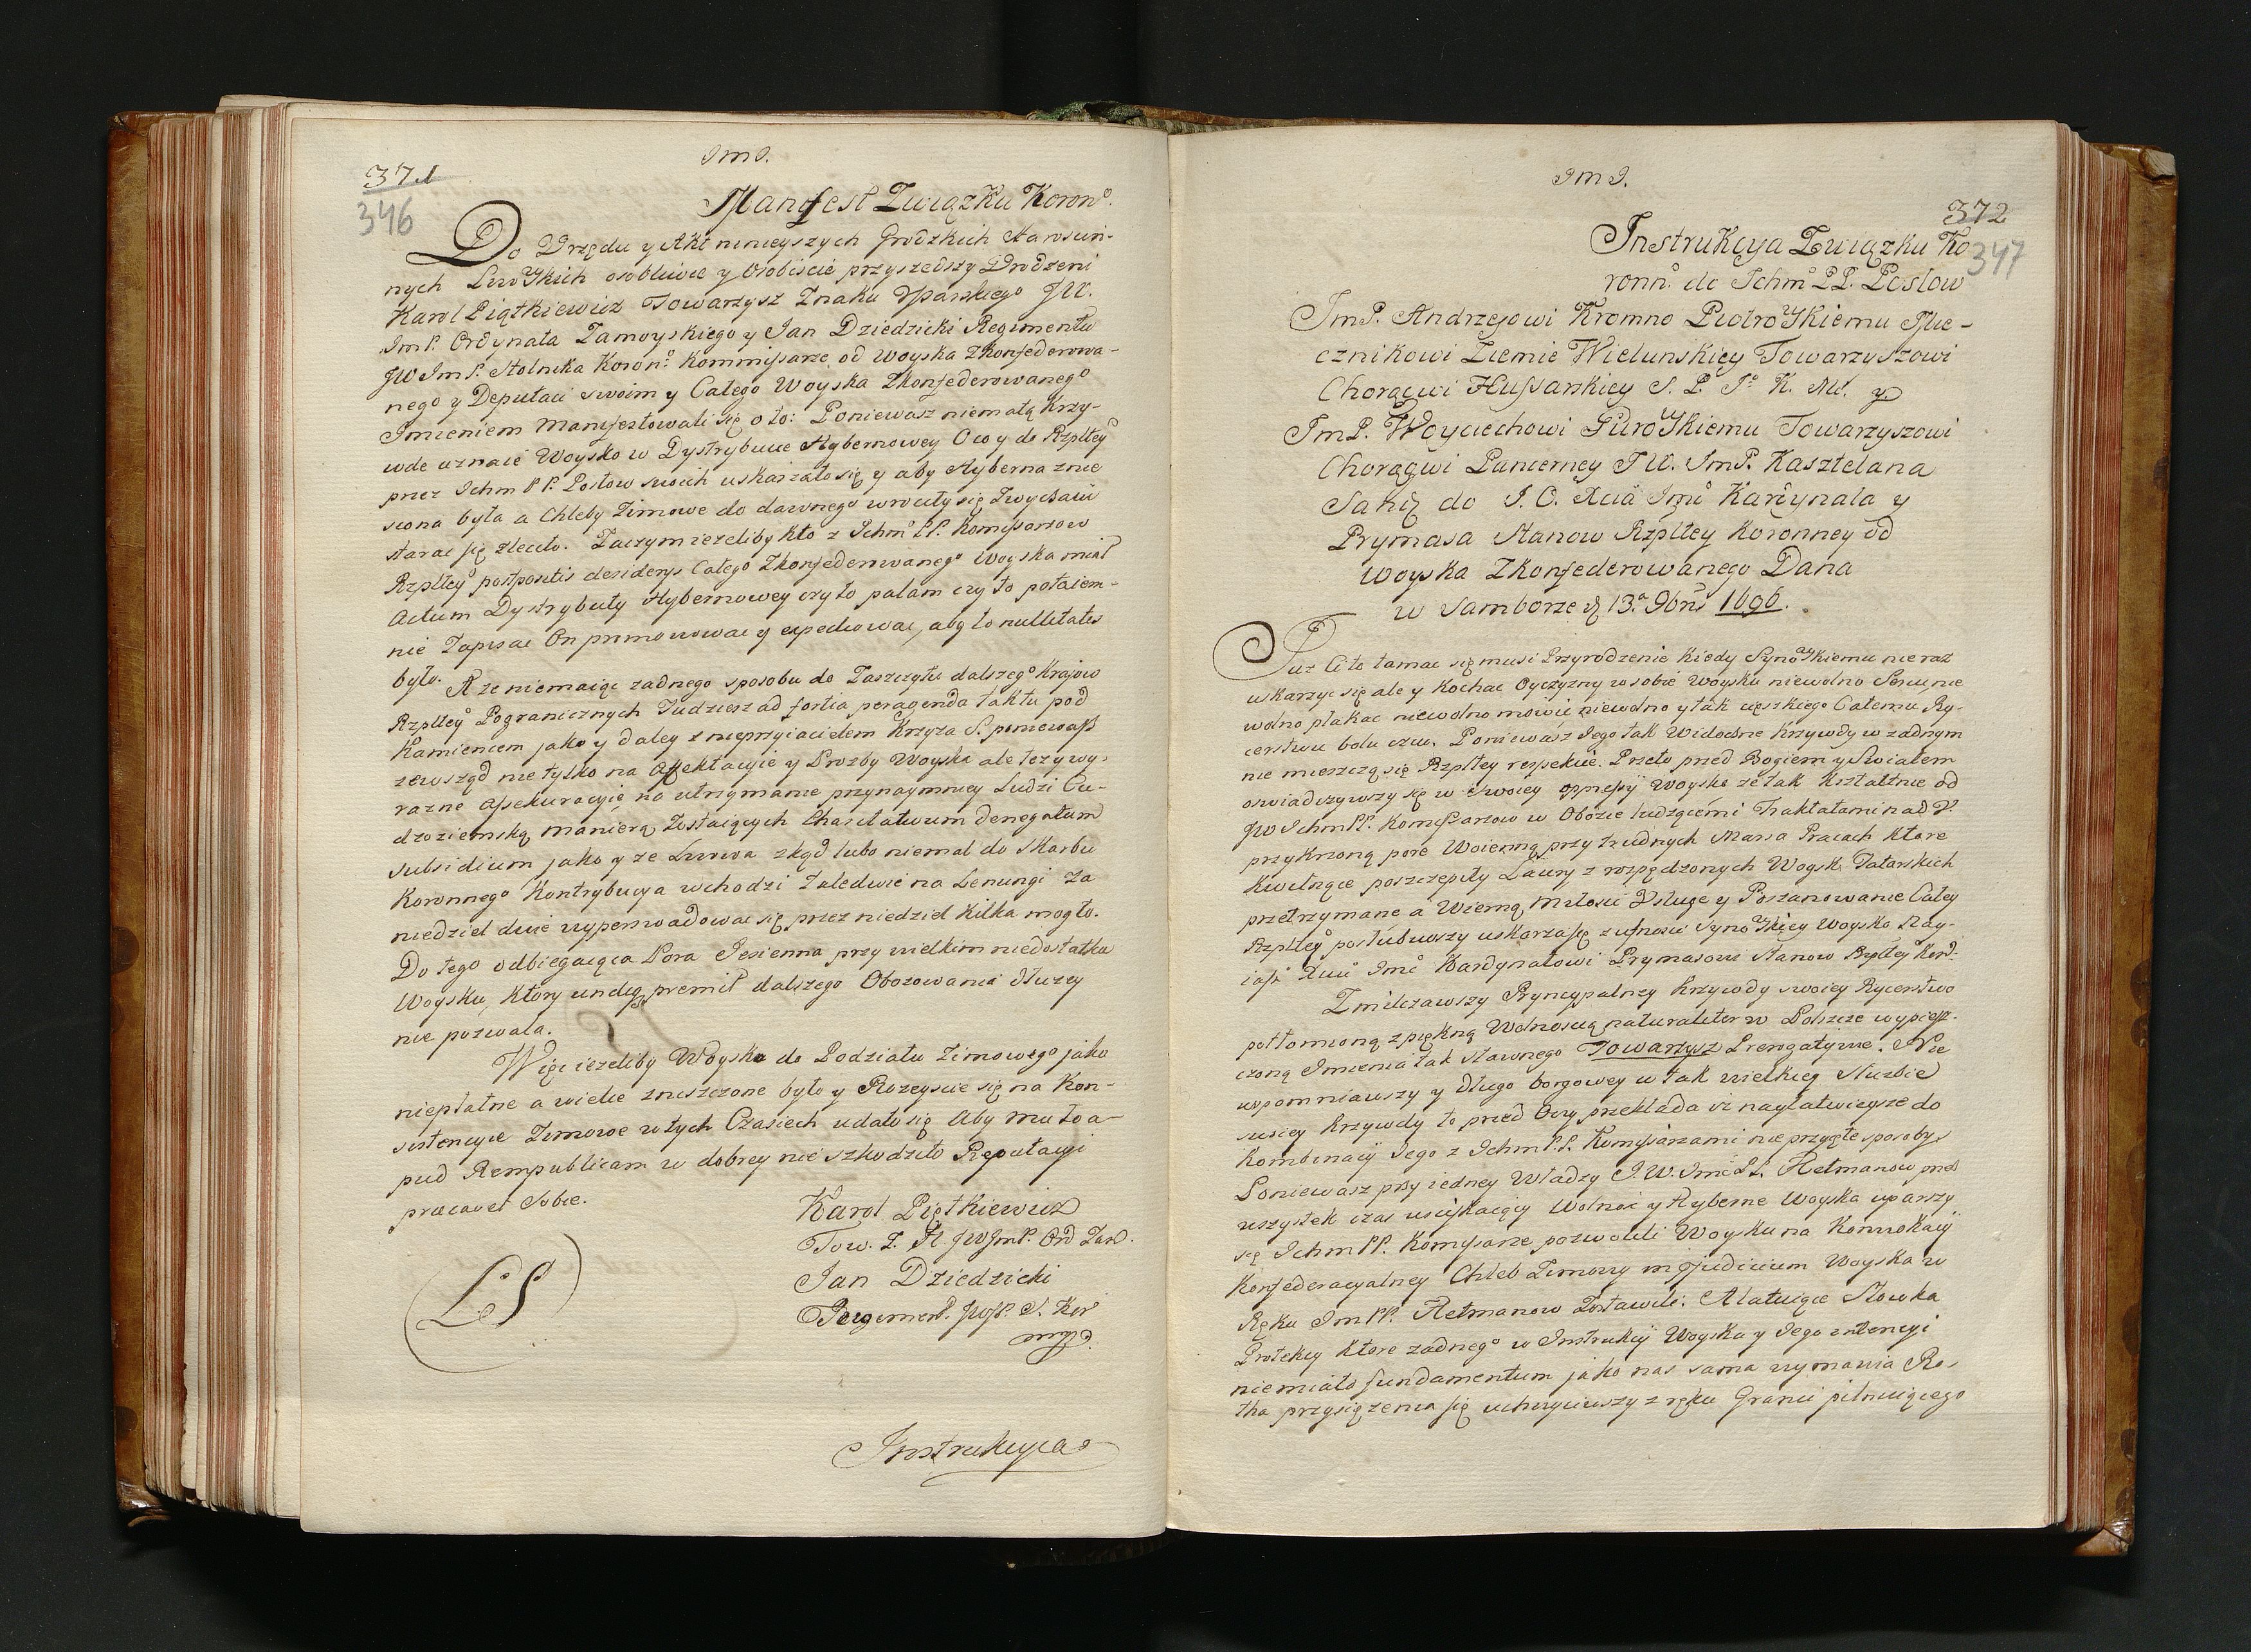 371
346
JmJ.
Manifest Związku Koronº.
Do Vrzędu y Akt ninieyszych Grodzkich Starościn-
nych Lwowskich osobliwie y osobiście przyszedszy Urodzeni
Karol Piątkiewicz Towarzysz Znaku Usarskiego JW.
JmP. Ordynata Zamoyskiego y Jan Dziedzicki Regimentu
JW JmP. Stolnika Koronº Kommissarze od Woyska Zkonfederowa-
nego y Deputaci swoim y Całego Woyska Zkonfederowanego
Imieniem Manifestowali się o to: Poniewasz niemałą krzy-
wde uznaić Woysko w Dystrybucie Hybernowey Ow y do Rzpltey
przez Ichm PP. Posłow swoich uskarzało się y aby Hyberna znie
siona była a Chleby Zimowe do dawnego wrociły się Zwyczaiu
starac się zleciło. Zaczym iezeliby kto z Ichmº PP. Komissarzow
Rzpltey postpositis desiderys Całego Zkonfederowanego Woyska miał
Actum Dystrybuty Hybernowey czy to palam czy to potaiem-
nie Zapisac On promowowac y expediowac, aby to nullitatis
było.
A ze niemaiąc zadnego sposobu do Zaszczytu dalszego Kraiow
Rzpltey Pogranicznych Tudziesz ad fortia peragenda tak tu pod
Kamiencem jako y daley z nieprzyiacielem Krzyza S. poniewasz
zewsząd nie tylko na Affektacyie y Prozby Woyska ale tez y wy-
razne Assekuracyie na utrzymanie przynaymniey Ludzi Cu-
dzoziemską manierą Zostaiących Charitativum denegatum
subsidium jako y ze Lwowa zkąd lubo niemal do Skarbu
Koronnego Kontrybucya wchodzi Zaledwie na Lenungi Za
niedziel dwie wyperswadowac się przez niedziel kilka mogło.
Do tego odbiegaiąca Pora Jesienna przy wielkim niedostatku
Woysku, ktory undiq premit dalszego Obozowania dłuzey
nie pozwala.
Więc iezeliby Woysko do Podziału Zimowego jako
niepłatne a wielce zniszczone było y Rozeyscie się na Kon-
sistencyie Zimowe w tych Czasiech udało się Aby mu to a-
pud Rempublicam w dobrey nie szkodziło Reputacyi
pracavet Sobie.
Karol Piątkiewicz
Tow. Z. H. JWJmP. Ord Zam.
Jan Dziedzicki
Regiment. JWJP. S. Kor
mpp.
LS
Instrukcya
JmJ.
372
347
Instrukcya Związku Ko
ronnº do Ichmº PP. Posłow
JmP. Andrzejowi Kromno Piotrowskiemu Mie-
cznikowi Ziemie Wielunskiey Towarzyszowi
Chorągwi Hussarskiey J. P. Jº K. M. y
JmP. Woyciechowi Gurowskiemu Towarzyszowi
Chorągwi Pancerney JW. JmP. Kasztelana
Sand do J. O. Xcia Jmci Kardynała y
Prymasa Stanow Rzpltey Koronney od
Woyska Zkonfederowanego Dana
w Samborze d 13.ª 9bris 1696.
Juz Ci to łamac się musi Przyrodzenie kiedy Synowskiemu nie raz
uskarzyc się ale y kochac Oyczyzny w sobie Woysku niewolno Sercu nie
wolno płakac niewolno, mowic niewolno y tak cięszkiego Całemu Ry-
cerstwu bolu czuc. Poniewasz Jego tak Widoczne Krzywdy w zadnym
nie mieszczą się Rzpltey respekcie. Przeto przed Bogiem y Swiatem
oswiadczywszy się w swoiey oppressyi Woysko ze tak kształtnie od
JW Ichm PP. Komissarzow w Obozie ludzącemi Traktatami nad V.
przykrzoną porę Woienną przy trudnych Marsa Pracach ktore
Kwitnące poszczepiły Laury z rozpędzonych Woysk Tatarskich
przetrzymane a Wierną Miłosci Usługę y Poszanowanie Całey
Rzpltey poslubiwszy uskarza się z ufnosci Synowskiey Woysko Nay-
iasº Xciu Jmci Kardynałowi Prymasowi Stanow Rzpltey Kor.
Zmilczawszy Pryncypalney krzywdy swoiey Rycerstwo
potłomioną z piękną Wolnoscią naturaliter w Polszcze wypiesz-
czoną Imienia tak sławnego Towarzysz Prerogatywe. Nie
wspomniawszy y długo borgowey w tak wielkiey słuzbie
swoiey krzywdy to przed Oczy przekłada iz nayłatwieysze do
Kombinacyi Jego z Ichm P.P. Komissarzami nie przyięte sposoby
Poniewasz przy iedney Władzy J.W. Jmci PP. Hetmanow przez
wszystek czas usciskaiący Wolnosc y Hyberne Woyska uparszy
się Ichm PP. Komissarze pozwolili Woysku na Konwokacyi
Konfederacyalney Chleb Zimowy in pjudicium Woyska w
Ręku Jm PP. Hetmanow Zostawili. A łatwiące Słowka
Protekcyi ktore zadnego w Instrukcyi Woyska y Jego intencyi
niemiało fundamentum jako nas sama wymawia Ro-
tha przysięzenia się uchwyciwszy z ręku Granic pilnuiącego